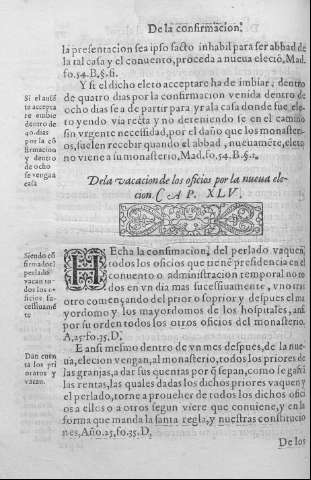 De la confirmacion.
la presentacion sea ipso facto inhabil para ser abbad de
la tal casa y el conuento, proceda a nueua eleció, Mad.
fo. 54. B. §. si.
Y si el dicho eleto acceptare ha de imbiar, dentro
de quatro dias por la confirmacion venida dentro de
ocho dias se a de partir para yr a la casa donde fue ele-
to yendo via recta y no deteniendo se en el camino
sin vrgente necessidad, por el daño que los monaste-
rios, suelen recebir quando el abbad, nueuamēte, eleto
no viene a su monasterio, Mad. fo. 54. B. §. 1.
Si el ansi
te accepta
re embie
dentro de
40. dias
por la cō
firmacion
y dentro
de ocho
se vengaa
casa
De la vacacion de los oficios por la nueua ele-
cion. CAP. XLV.
Siendo cō
firmado el
perlado
vacan to-
dos los o-
ficios su-
cessiuamē
te
HEcha la confirmacion, del perlado vaquen,
todos los oficios que tiene presidencia en el
conuento o administracion temporal no to
dos en vn dia mas sucessiuamente, vno tras
otro començando del prior o soprior y despues el ma
yordomo y los mayordomos de los hospitales, ansi
por su orden todos los otros oficios del monasterio.
A, 25. fo. 35. D.
Dan cuen
ta los pri
oratos y
vacan.
E ansi mesmo dentro de vn mes despues, de la nue-
ua, elecion vengan, al monasterio, todos los priores de
las granjas, a dar sus quentas por q̃ sepan, como se gastā
las rentas, las quales dadas los dichos priores vaquen y
el perlado, torne a proueher de todos los dichos ofici
os a ellos o a otros segun viere que conuiene, y en la
forma que manda la santa regla, y nuestras constitucio
nes, Año. 25, fo. 35. D,
De los